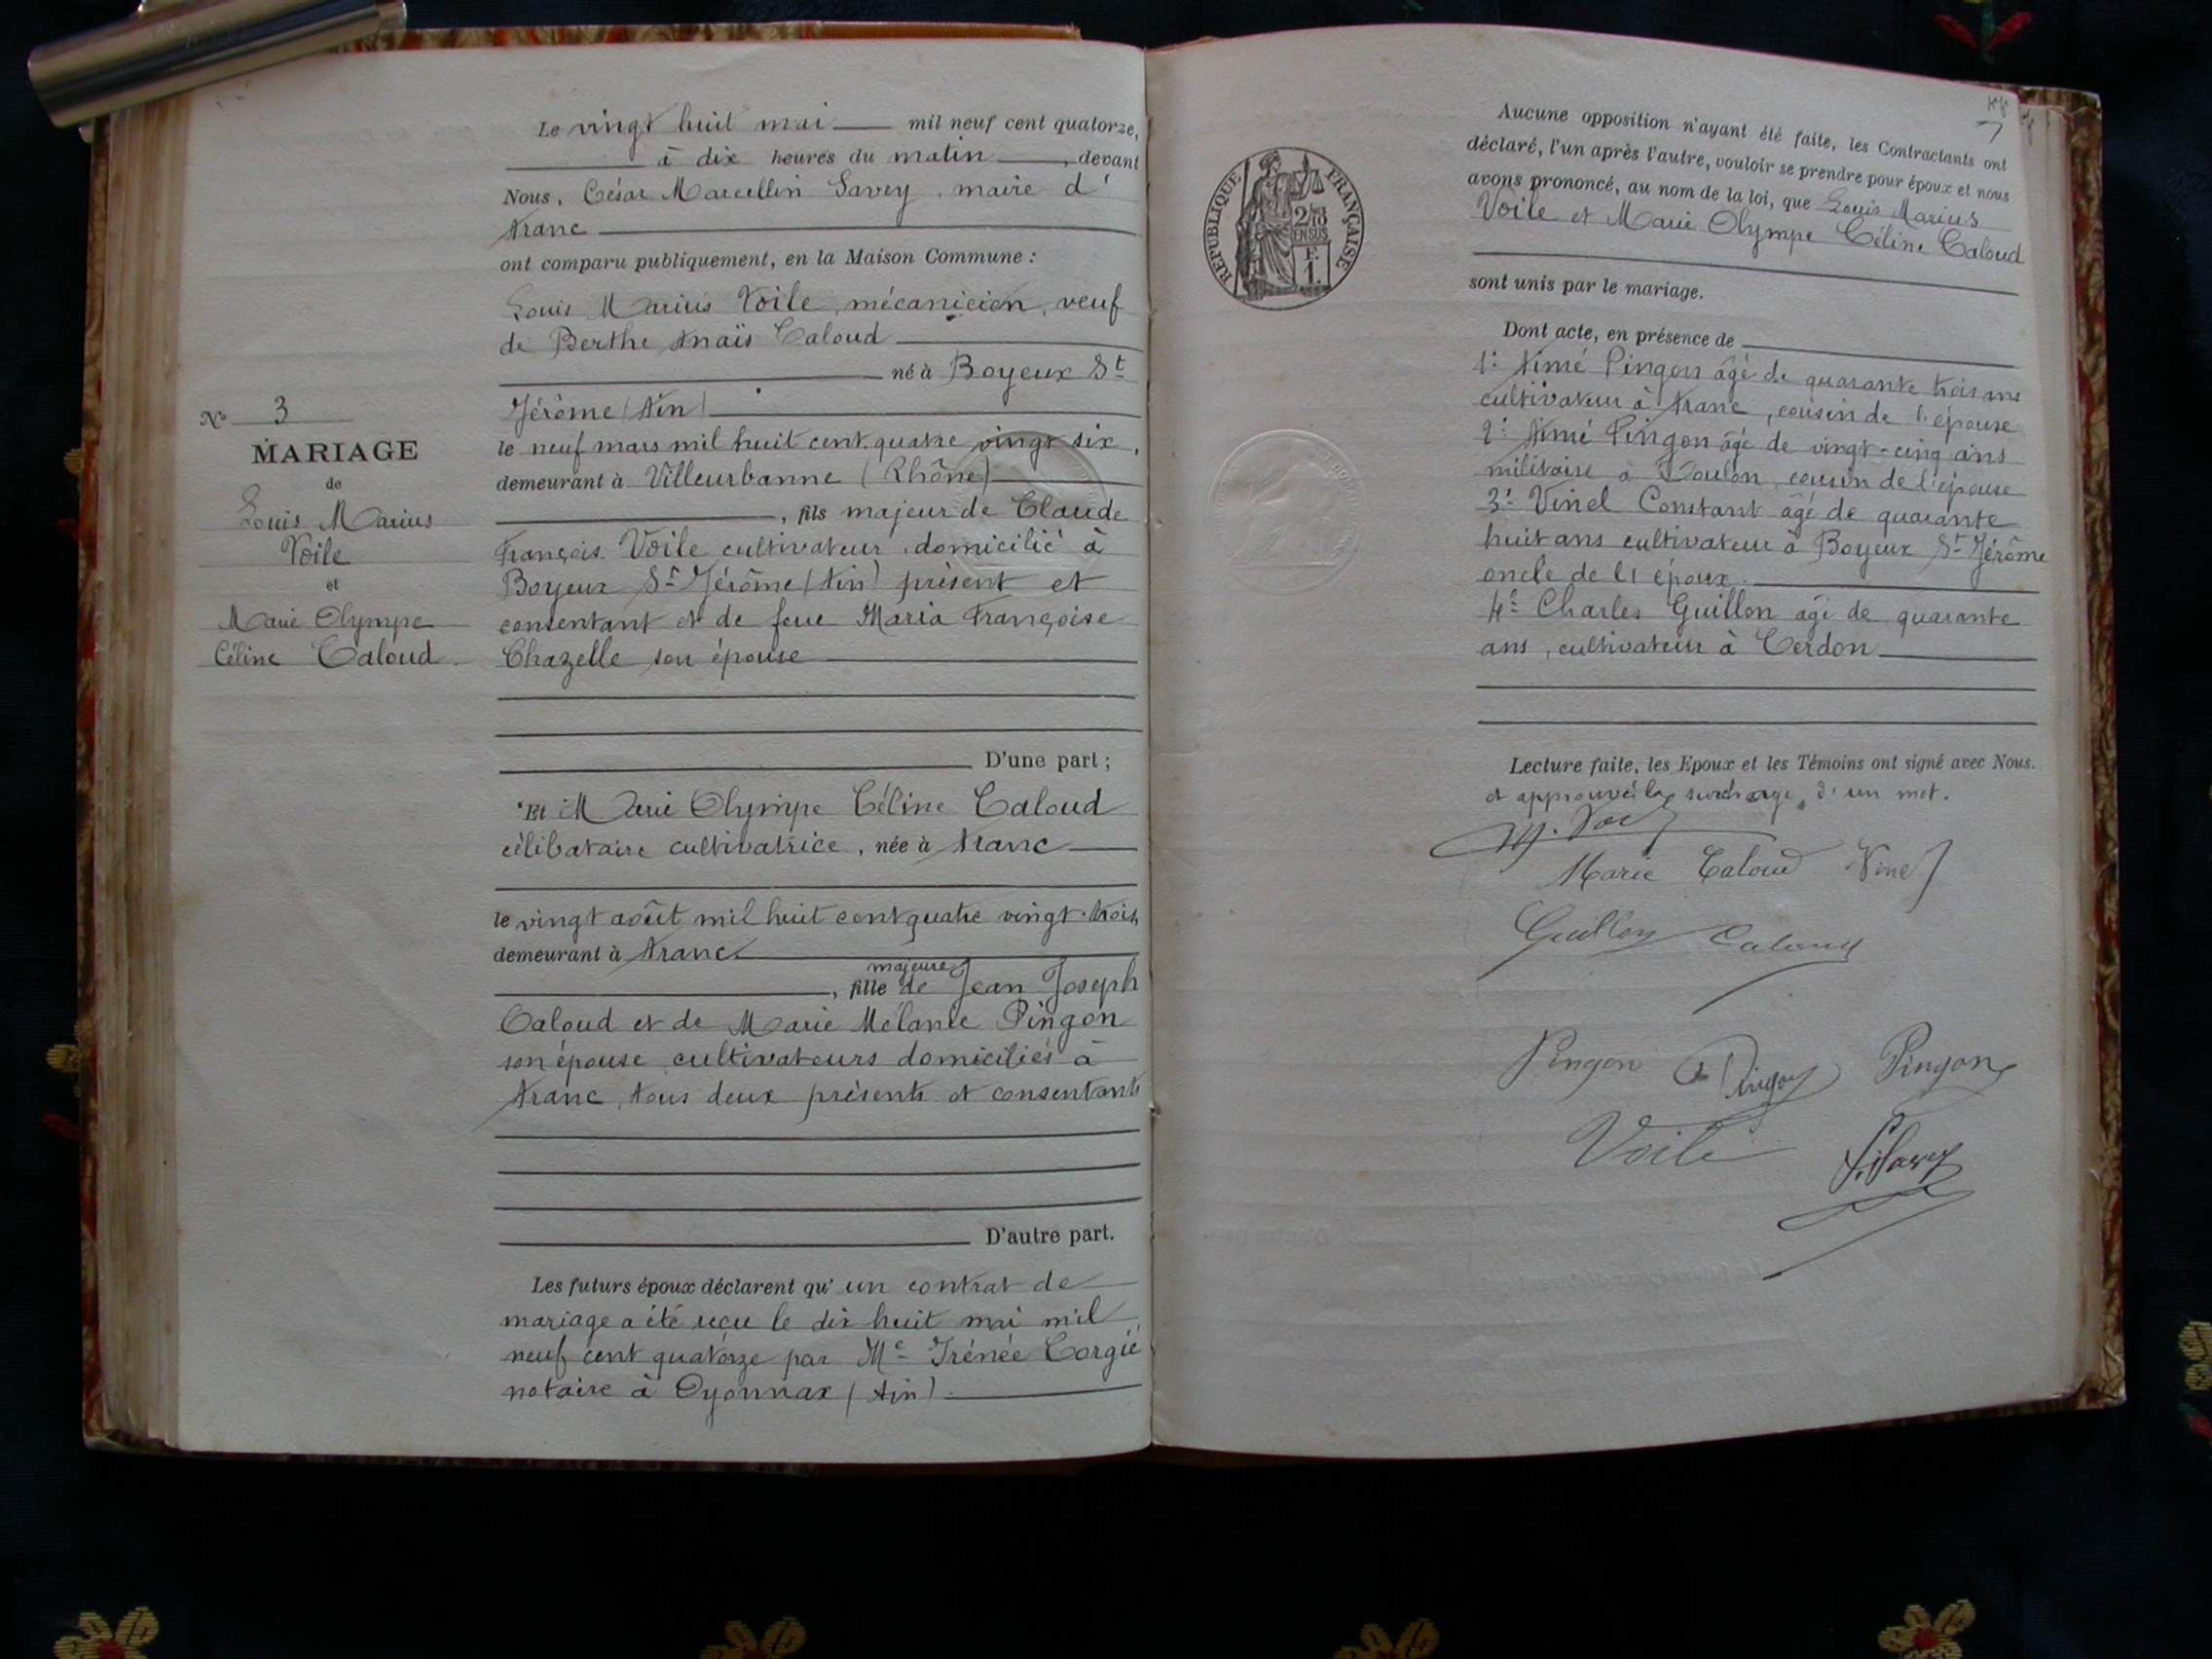 Le vingt huit mai mil neuf cent quatorze,
à dix heures du matin, devant
Nous, César Marcellin Savey, maire d'
Aranc
ont comparu publiquement, en la Maison Commune :
Louis Marius Voile, mécanicien, veuf
de Berthe Anaïs Caloud
né à Boyeux St
Jérôme (Ain)
le neuf mars mil huit cent quatre vingt six,
demeurant à Villeurbanne (Rhône)
, fils majeur de Claude
François Voile cultivateur, domicilié à
Boyeux St Jérôme (Ain) présent et
consentant et de feue Maria Françoise
Chazelle son épouse
D'une part ;
No 3
MARIAGE
de
Louis Marius
Voile
et
Marie Olympe
Céline Caloud.
Et Marie Olympe Céline Caloud
célibataire cultivatrice, née à Aranc
le vingt août mil huit cent quatre vingt-trois,
demeurant à Aranc
majeure
, fille de Jean Joseph
Caloud et de Marie Mélanie Pingon
son épouse cultivateurs domiciliés à
Aranc, tous deux présents et consentants
D'autre part.
Les futurs époux déclarent qu'un contrat de
mariage a été reçu le dix huit mai mil
neuf cent quatorze par Me Irénée Corgié
notaire à Oyonnax (Ain).
Aucune opposition n'ayant été faite, les Contractants ont
déclaré, l'un après l'autre, vouloir se prendre pour époux et nous
avons prononcé, au nom de la loi, que Louis Marius
Voile et Marie Olympe Céline Caloud
sont unis par le mariage.
Dont acte, en présence de
1° Aimé Pingon âgé de quarante trois ans
cultivateur à Aranc, cousin de l'épouse
2° Aimé Pingon âgé de vingt-cinq ans
militaire à Toulon, cousin de l'épouse
3° Vinel Constant âgé de quarante
huit ans cultivateur à Boyeux St Jérôme
oncle de l'époux.
4° Charles Guillon âgé de quarante
ans, cultivateur à Cerdon
Lecture faite, les Epoux et les Témoins ont signé avec Nous.
et approuvé la surcharge d'un mot.
Marie Caloud Vinel
Guillon Caloud
Pingon Pingon Pingon
Voile Savey
RÉPUBLIQUE FRANÇAISE
2/10
EN SUS
F.
1.